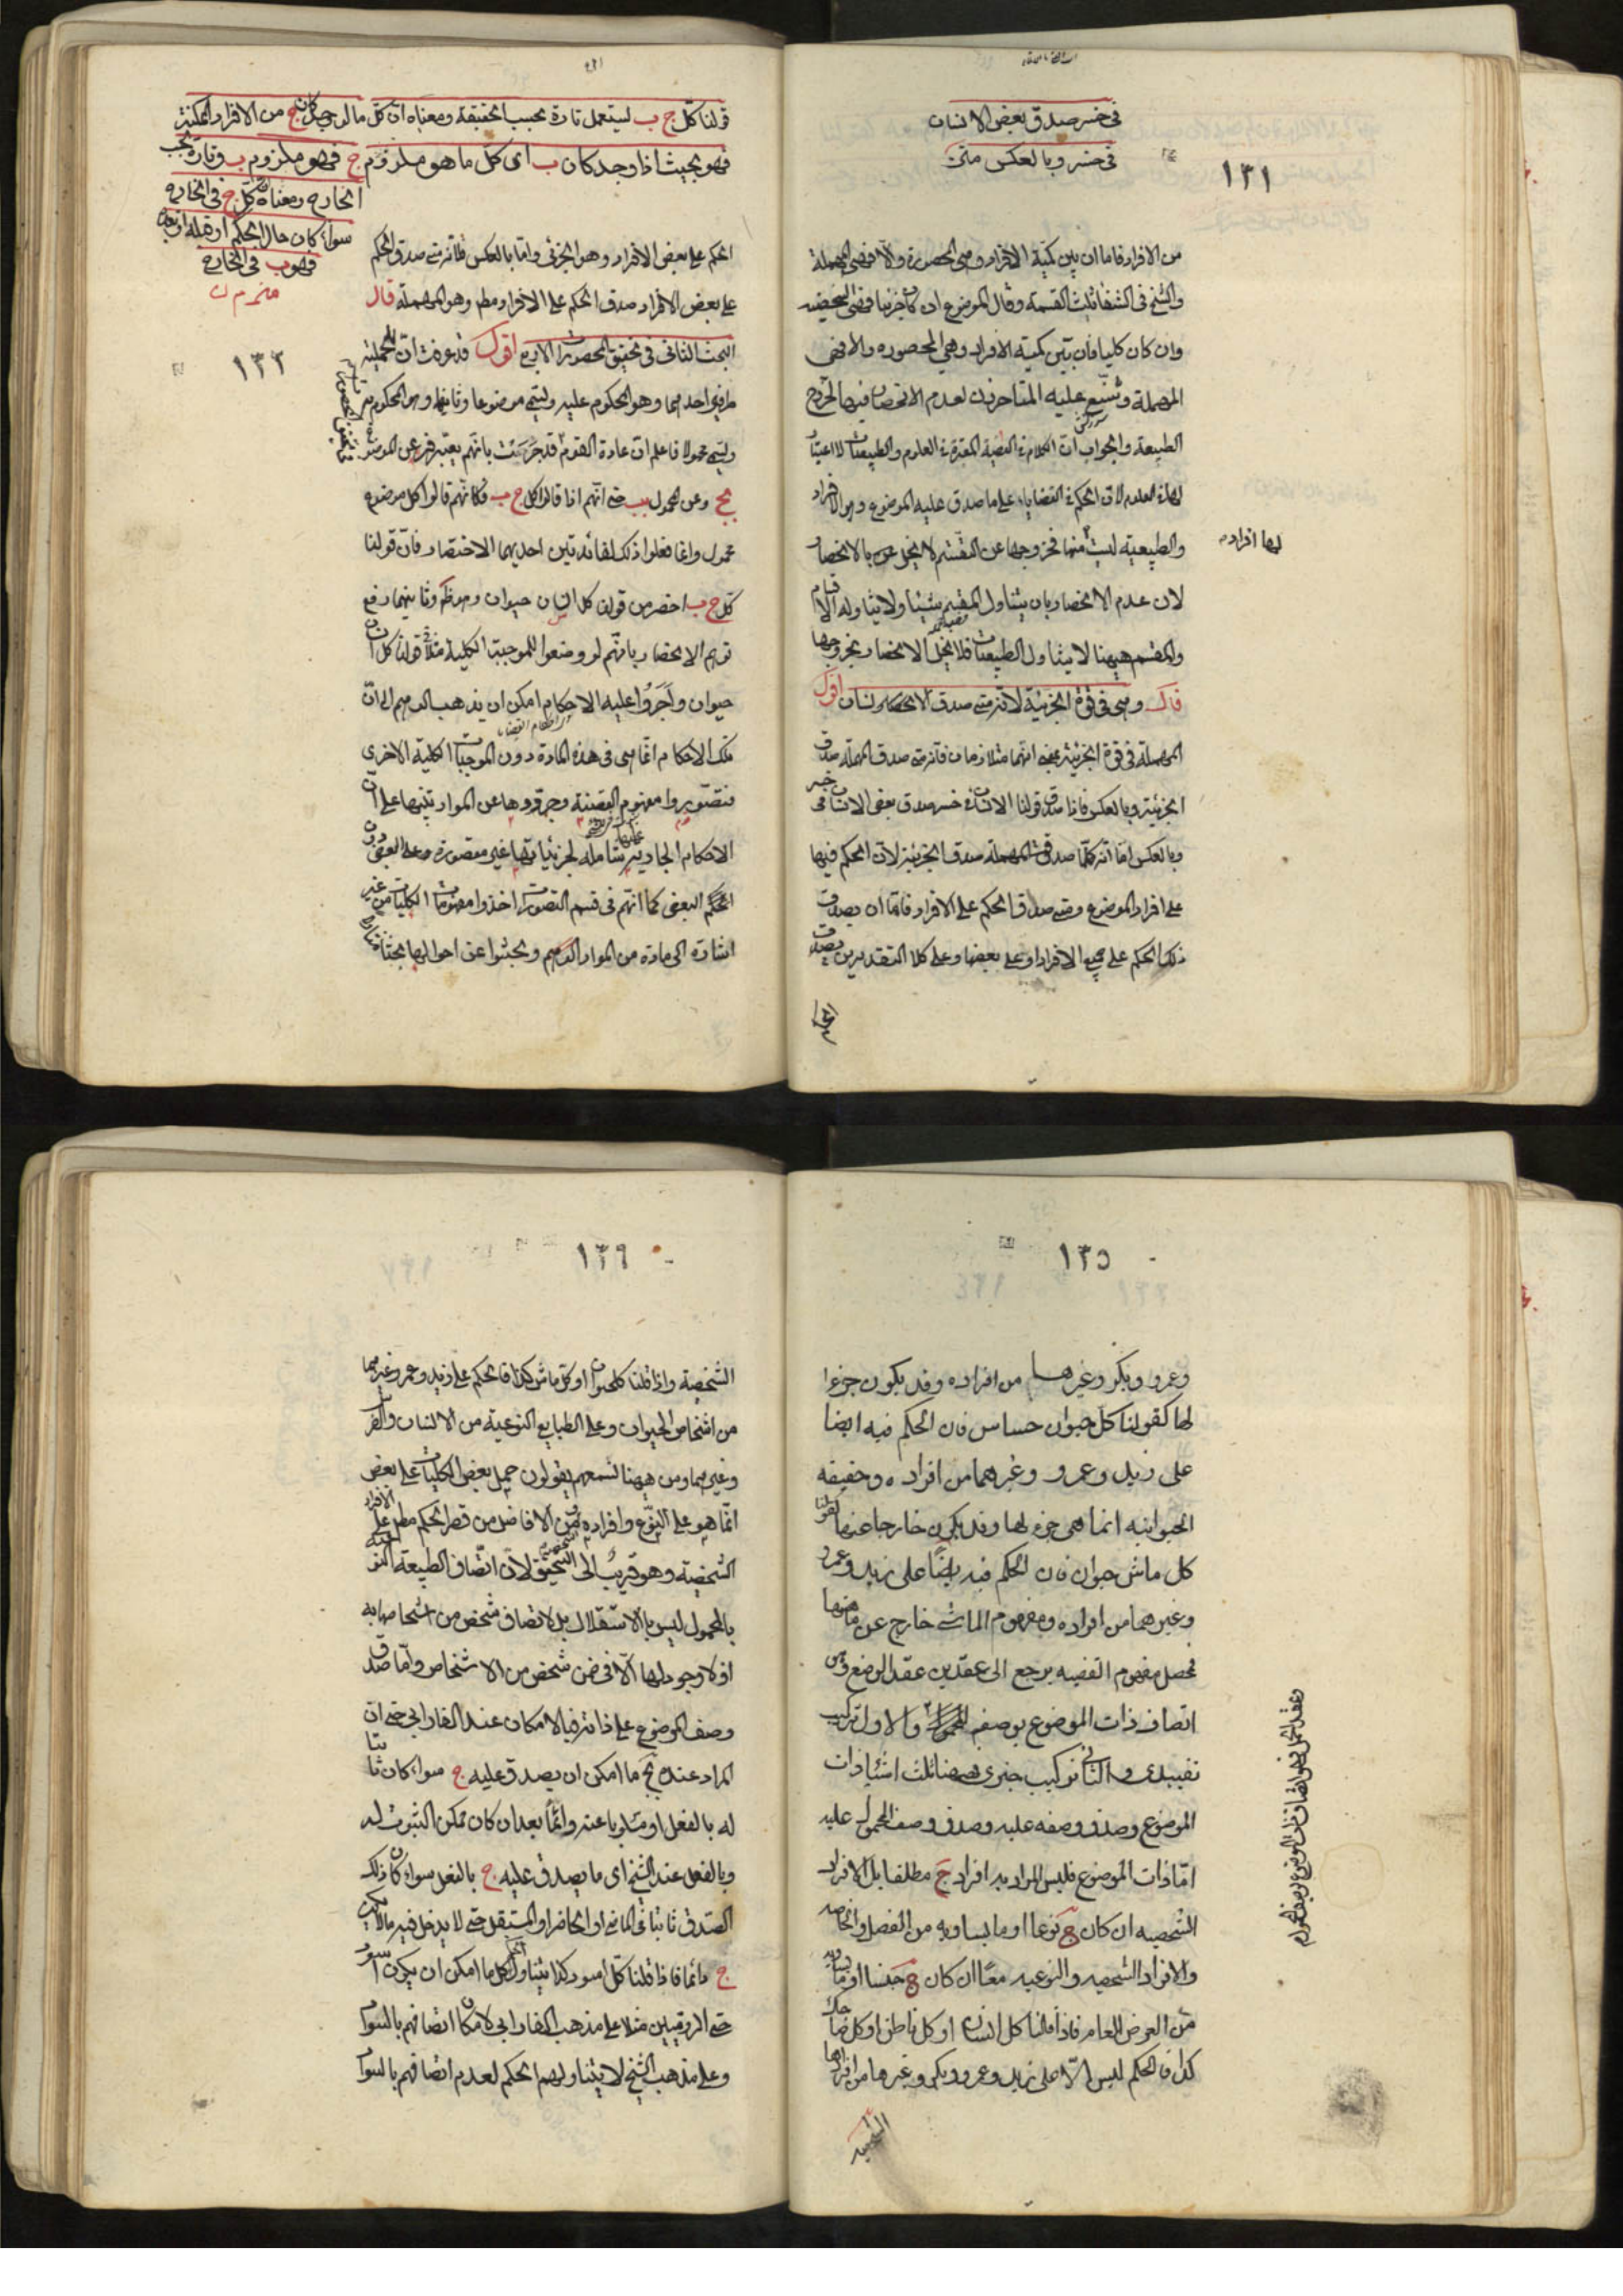 فى خسر صدق بعض الانسان
فى خسر وبالعكس متن
١٣١
من الافراد فاما ان يبين كمية الافراد وهى المحصورة والا فهى المهملة
والشيخ فى الشفا ثلث القسمة وقال الموضوع ان كان جزئيا فهى الشخصيه
وان كان كليا فان بين كمية الافراد وهي المحصوره والا فهى
المهملة وشنع عليه المتاخرون لعدم الانحصار فيها لخروج
الطبيعة والجواب ان الكلام فى القضية المعتبرة فى العلوم والطبيعيات لا اعتبار
لها فى العلوم لان الحكم فى القضايا على ما صدق عليه الموضوع وهو الافراد
والطبيعية ليست منها فخروجها عن التقسيم لا يخل بالانحصار
لها افراد
لان عدم الانحصار بان يتناول المقسم شيئا ولا يتناوله الاقسام
والمقسم ههنا لا يتناول الطبيعيات فلا يخل الانحصار بخروجها
قال وهى فى قوة الجزئية لانه متى صدق الانسان اقول
المهملة فى قوة الجزئية بمعنى انهما متلازمان فانه متى صدق المهملة صدق
الجزئية وبالعكس فاذا صدق قولنا الانسان فى خسر صدق بعض الانسان فى خسر
وبالعكس اما انه كلما صدقت المهملة صدق الجزئية لان الحكم فيها
على افراد الموضوع ومتى صدق الحكم على الافراد فاما ان يصدق
ذلك الحكم على جميع الافراد او على بعضها وعلى كلا التقديرين يصدق
الحكم
قولنا كل ج ب يستعمل تارة بحسب الحقيقة ومعناه ان كل ما لو وجد كان ج من الافراد الممكنة
فهو بحيث اذا وجد كان ب اى كل ما هو ملزوم ج فهو ملزوم ب وتارة بحسب
الخارج ومعناه كل ج فى الخارج
سواء كان حال الحكم او قبله او بعده
فهو ب فى الخارج
١٣٢
الحكم على بعض الافراد وهو الجزئى واما بالعكس فلانه متى صدق الحكم
على بعض الافراد صدق الحكم على الافراد مطلقا وهو المهملة قال
البحث الثانى فى تحقيق المحصورات الاربع اقول قد عرفت ان للحملية
طرفين احدهما وهو المحكوم عليه ويسمى موضوعا وثانيهما وهو المحكوم به
ويسمى محمولا فاعلم ان عادة القوم قد جرت بانهم يعبرون عن الموضوع
بج وعن المحمول بب حتى انهم اذا قالوا كل ج ب فكانهم قالوا كل موضوع
محمول وانما فعلوا ذلك لفائدتين احديهما الاختصار فان قولنا
كل ج ب اخصر من قولنا كل انسان حيوان وهو ظاهر وثانيهما دفع
توهم الانحصار بانهم لو وضعوا للموجبة الكلية مثلا قولنا كل انسان
حيوان واجروا عليه الاحكام امكن ان يذهب الوهم الى ان
تلك الاحكام انما هى فى هذه المادة دون الموجبات الكلية الاخرى
فتصوروا مفهوم القضية وجردوها عن المواد تنبيها على ان
الاحكام الجارية عليها شاملة لجزئياتها غير مقصورة على البعض دون
البعض كما انهم فى قسم التصورات اخذوا مفهومات الكليات من غير
اشارة الى مادة من المواد وبحثوا عن احوالها بحثا
١٣٥
وعمرو وبكر وغيرهما من افراده وقد يكون جزءا
لها كقولنا كل حيوان حساس فان الحكم فيه ايضا
على زيد وعمرو وغيرهما من افراده وحقيقه
الحيوانيه انما هى جزء لها وقد يكون خارجا عنها كقولنا
كل ماش حيوان فان الحكم فيه ايضا على زيد وعمرو
وغيرهما من افراده ومفهوم الماشى خارج عن ماهيتها
فمحصل مفهوم القضيه يرجع الى عقدين عقد الوضع وهو
اتصاف ذات الموضوع بوصفه والاول تركيب
تقييدى والثانى تركيب خبرى فههنا ثلث اشياء ذات
الموضوع وصدق وصفه عليه وصدق وصف المحمول عليه
اما ذات الموضوع فليس المراد به افراد ج مطلقا بل الافراد
الشخصيه ان كان ج نوعا او ما يساويه من الفصل والخاصه
والافراد الشخصيه والنوعيه معا ان كان ج جنسا او ما يساويه
من العرض العام فاذا قلنا كل انسان او كل ناطق او كل ضاحك
كذا فالحكم ليس الا على زيد وعمرو وبكر وغيرها من افرادها
وعقد الحمل وهو اتصاف ذات الموضوع بوصف المحمول
الشخصية
١٣٦
الشخصية واذا قلنا كل حيوان او كل ماش كذا فالحكم على زيد وعمرو وغيرهما
من اشخاص الحيوان وعلى الطبايع النوعية من الانسان والفرس
وغيرهما ومن ههنا تسمعهم يقولون حمل بعض الكليات على بعض
انما هو على النوع وافراده ومن الافاضل من قصر الحكم مطلقا على الافراد
الشخصية وهو قريب الى التحقيق لان اتصاف الطبيعة النوعية
بالمحمول ليس بالاستقلال بل لاتصاف شخص من اشخاصها به
اذ لا وجود لها الا فى ضمن شخص من الاشخاص واما صدق
وصف الموضوع على ذاته فبالامكان عند الفارابى حتى ان
المراد عنده بج ما امكن ان يصدق عليه ج سواء كان ثابتا
له بالفعل او مسلوبا عنه دائما بعد ان كان ممكن الثبوت له
وبالفعل عند الشيخ اى ما يصدق عليه ج بالفعل سواء كان ذلك
الصدق ثابتا فى الماضى او الحاضر او المستقبل حتى لا يدخل فيه ما لا يكون
ج دائما فاذا قلنا كل اسود كذا يتناول الحكم كل ما امكن ان يكون اسود
حتى الروميين مثلا على مذهب الفارابى لامكان اتصافهم بالسواد
وعلى مذهب الشيخ لا يتناولهم الحكم لعدم اتصافهم بالسواد